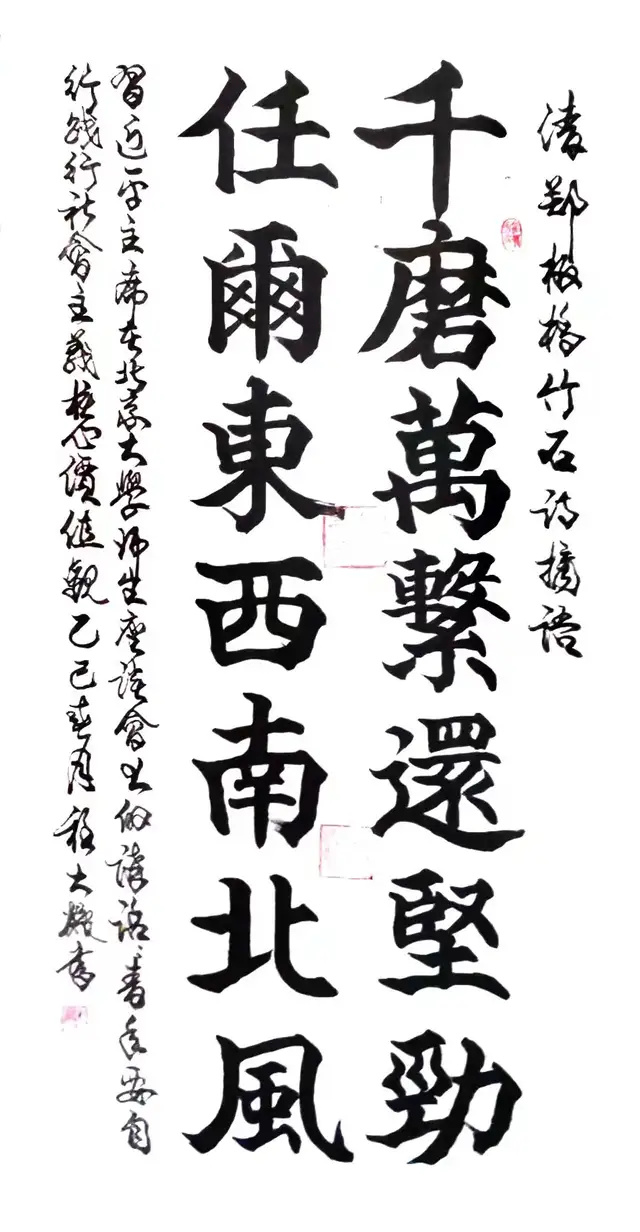 清鄭板橋竹石詩摘語
千磨萬繫還堅勁
任爾東西南北風
習近平主席在北京大學师生座談會上的講話青年要自
行践行社會主義核心價值觀乙巳春月程大書